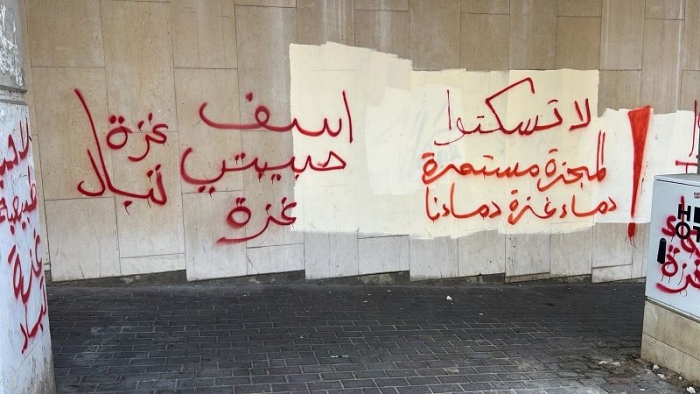 لا تسكتوا
المجزرة مستمرة
دماء غزة دماءنا
اسف
حبيبتي
غزة
غزة
تباد
غزة
تباد
غزة